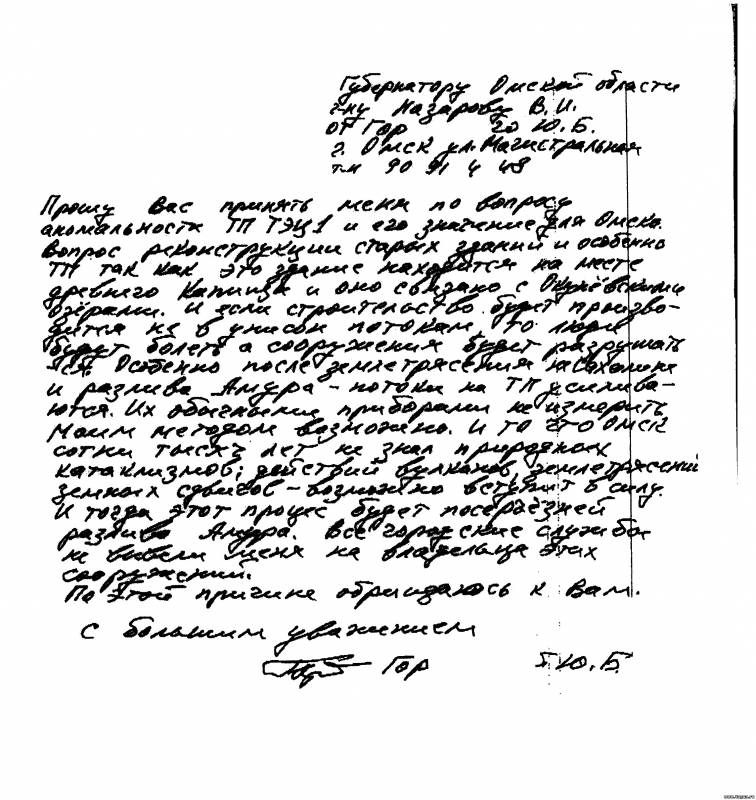 Губернатору Омской области
г-ну Назарову В.И.
от Гор го Ю.Б.
г. Омск ул. Магистральная
т-н 90 91 4 49
Прошу Вас принять меня по вопросу
аномальности ТП ТЭЦ1 и его значение для Омска.
Вопрос реконструкции старых зданий и особенно
ТП так как это здание находится на месте
древнего Капища и оно связано с Окунёвскими
озёрами. И если строительство будет произво-
дится не в унисон потокам, то люди
будут болеть а сооружения будет разрушать
ся. Особенно после землетрясения на Сахалине
и разлива Амура - потоки на ТП усилива-
ются. Их обычными приборами не измерить
Моим методом возможно. И то что Омск
сотни тысяч лет не знал природных
катаклизмов; действий вулканов, землетрясений
земных сдвигов - возможно вступит в силу.
И тогда этот процес будет посерьёзней
разлива Амура. Все городские службы
не вывели меня на владельца этих
сооружений.
По этой причине обращаюсь к Вам.
С большим уважением
Гор Ю.Б.